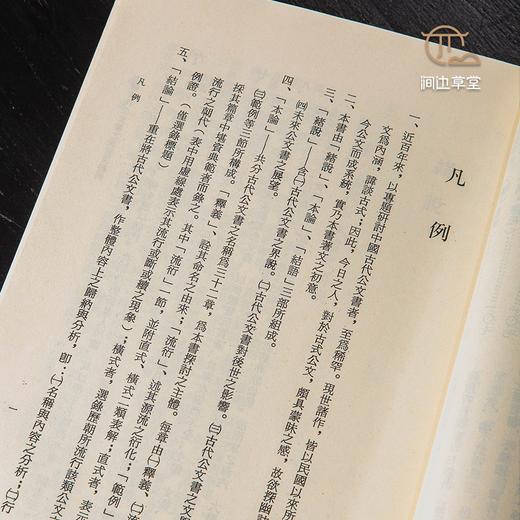 润边草堂
凡例
一、近百年來，以專題研討中國古代公文書者，至爲稀罕。現世諸作，皆以民國以來所
文爲內涵，諱談古式；因此，今日之人，對於古式公文，頗具蒙昧之感，故欲探幽
今公文而成系統，實乃本書著文之初意。
二、本書由「緒說」、「本論」、「結語」三部所組成。
三、「緒說」——含㈠古代公文書之界說。㈡古代公文書對後世之影響。㈢古代公文書之文
㈣未來公文書之展望。
四、「本論」——共分古代公文書之名稱爲三十二章，爲本書探討之主體。每章由㈠釋義、㈡流
㈢範例等三節所構成。「釋義」、詮其命名之由來；「流衍」、述其源流之衍化；「範例」
採其篇章中堪資典範者而錄之。其中「流衍」一節，並附直式、橫式二類表解，直式者，表示
流行之朝代（表中用虛線處表示其流行或斷或續之現象）；橫式者，選錄歷朝所流行該類公文
例證。（僅選錄標題）
五、「結論」——重在將古代公文書，作整體內容上之歸納與分析，即：㈠名稱與內容之分析；㈡行
凡例
一